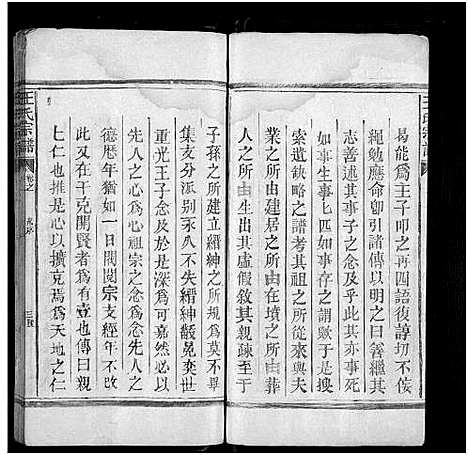 王氏宗譜
易能爲主子叩之再四語復諄切不佞
繩勉應命卽引諸傳以明之曰善繼其
志善述其事子之念及此其亦事死
如事生事亡如事存之謂歟于是搜
索遺缺略之譜考其祖之所歷
業之所由建居之所由在墳之所由葬
人之所由生出其虛假敘其親疎至于
子孫之所建立縉紳之所規爲莫不
集支分派別永久不失縉紳骰奕世
重光王子念及於是深爲可嘉然必以
先人之心爲心祖宗之念爲念先人之
德曆年猶如一日閱閱宗支經年不改
此又在于克開賢者爲有也傳曰親
上仁也推是心以擴充焉爲天地之仁
王氏宗譜
卷之